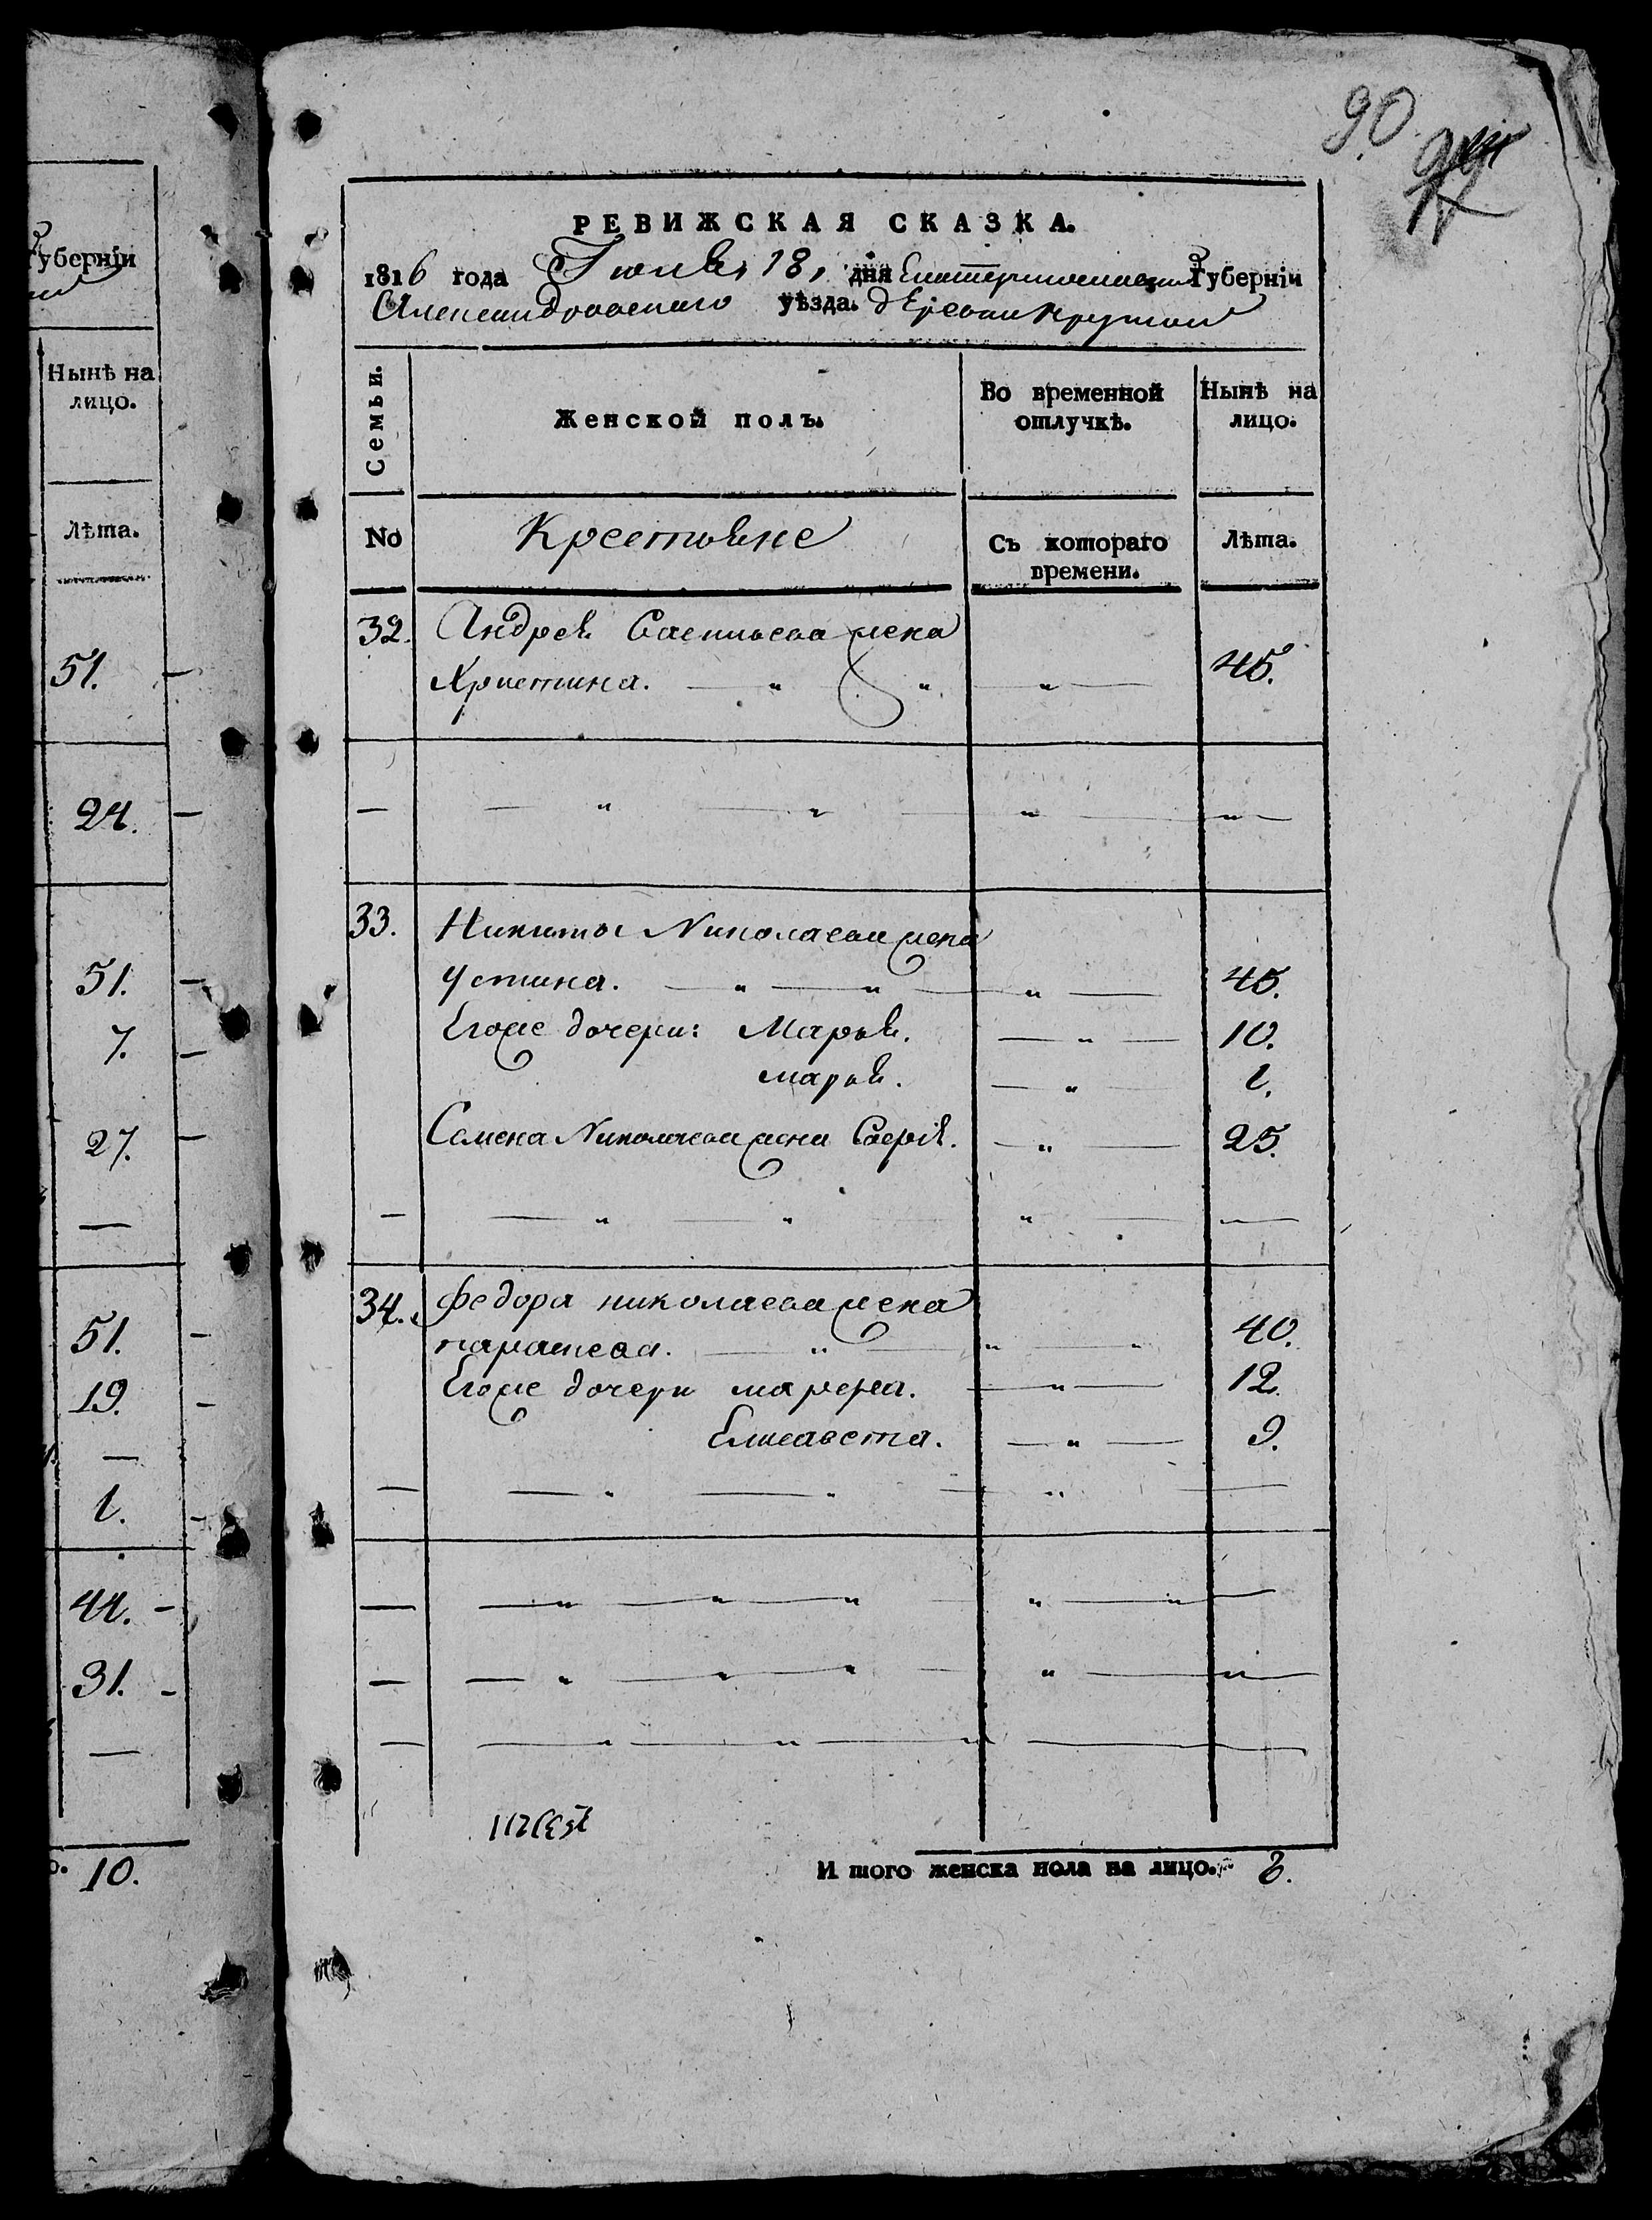 Губерніи
Нынѣ на
лицо.
Лѣта.
51.
24.
51.
7.
27.
51.
19.
1.
44.
31.
о. 10.
90.
РЕВИЖСКАЯ СКАЗКА.
1816 года Июля 18, дня Екатеринославской Губерніи
Александровского уѣзда. дЕревни Крутой
Семьи.
Женской полъ.
Во временной
отлучкѣ.
Нынѣ на
лицо.
No
Крестьяне
Съ котораго
времени.
Лѣта.
32. Андрея Васильева жена
Христина. — „ — „ „ — 45.
— — „ — „ — „ — „ —
33. Никиты Николаева жена
Устина. — „ — „ — „ — 45.
Егоже дочери: Марья. — „ — 10.
марья. — „ — 1.
Семена Николаева жена — „ — 25.
— — „ — „ — „ — —
34. Федора николаева жена
параскева. — „ — „ — „ 40.
Егоже дочери марфа. — „ — 12.
Елисавета. — „ — 9.
— — „ — „ — „ — —
— — „ — „ — „ — „ — „ —
— — „ — „ — „ — „ — „ —
— — „ — „ — „ — —
И того женска пола на лицо. 8.